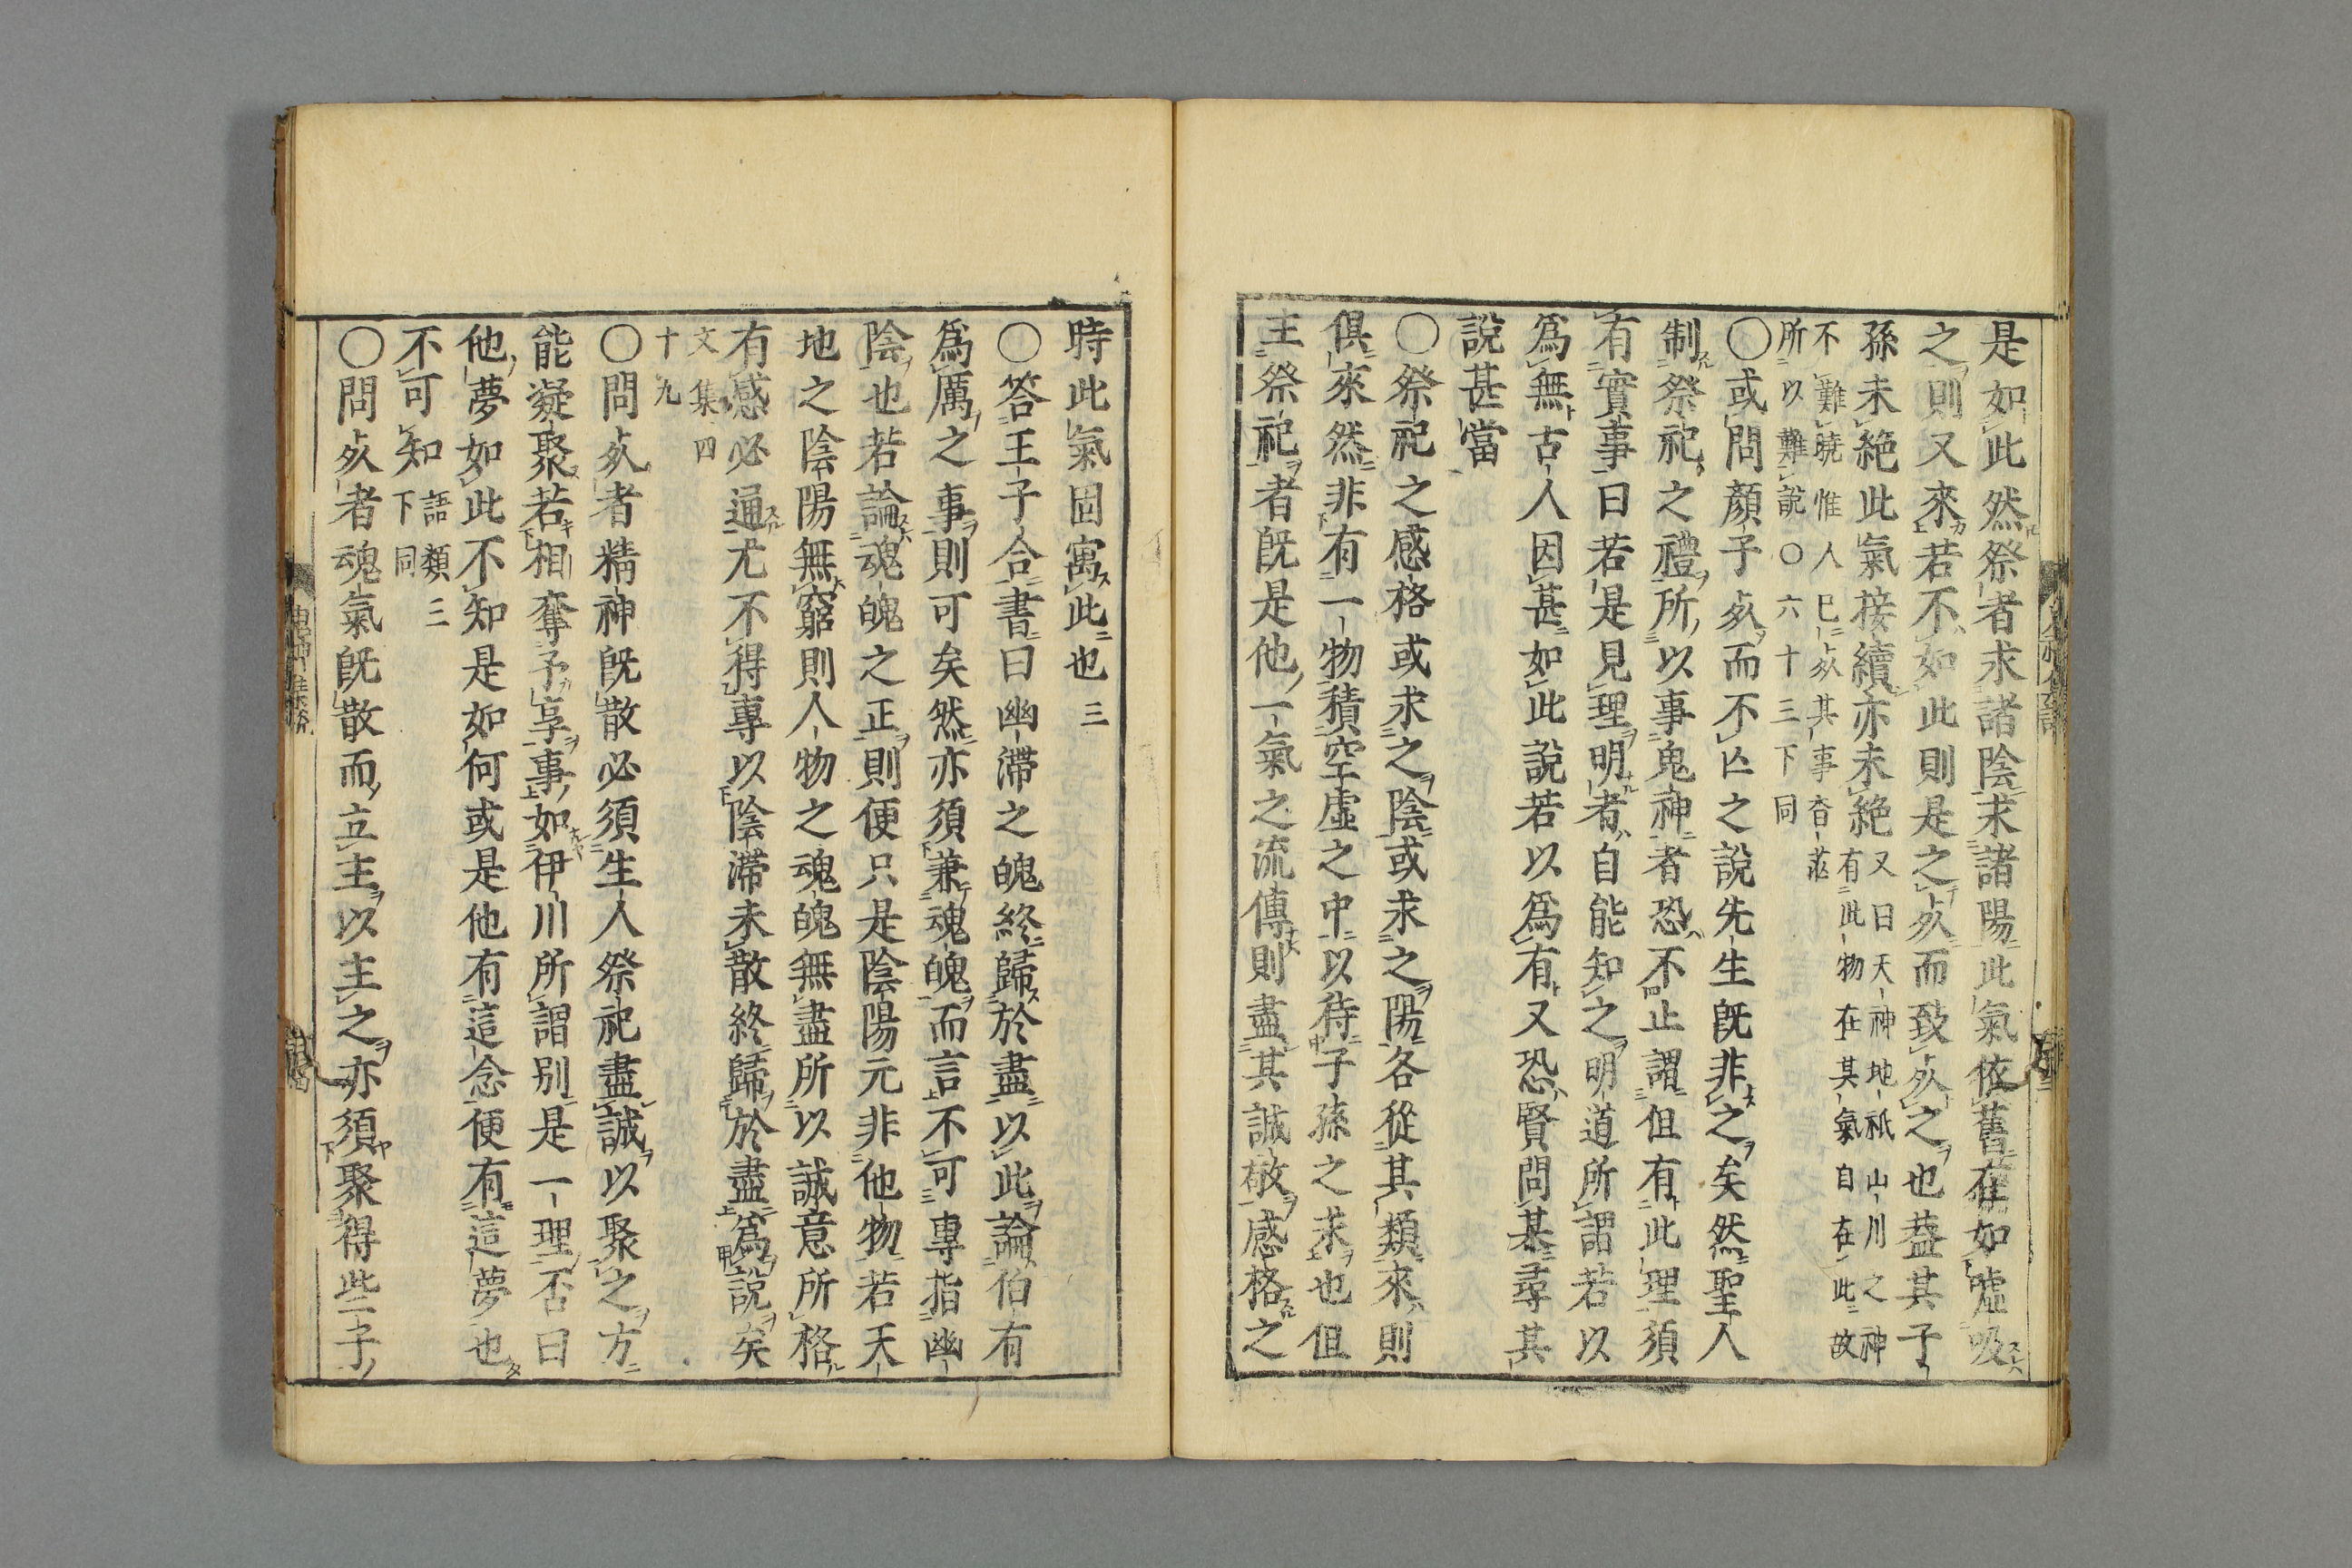 是如此然祭者求諸陰求諸陽此氣依舊在如噓吸
之則又來若不如此則是之死而致死之也葢其子
孫未絶此氣接續亦未絶又曰天神地祇山川之神
有此物在其氣自在此故
不難曉惟人已死其事杳茫
所以難說○六十三下同
○或問顏子死而不亡之說先生旣非之矣然聖人
制祭祀之禮所以事鬼神者恐不止謂但有此理須
有實事曰若是見理明者自能知之明道所謂若以
爲無古人因甚如此說若以爲有又恐賢問某尋其
說甚當
○祭祀之感格或求之陰或求之陽各從其類來則
俱來然非有一物積空虛之中以待子孫之求也但
主祭祀者旣是他一氣之流傳則盡其誠敬感格之
時此氣固寓此也三
○答王子合書曰幽滯之魄終歸於盡以此論伯有
爲厲之事則可矣然亦須兼魂魄而言不可專指幽
陰也若論魂魄之正則便只是陰陽元非他物若天
地之陰陽無窮則人物之魂魄無盡所以誠意所格
有感必通尤不得專以陰滯未散終歸於盡爲說矣
文集四
十九
○問死者精神旣散必須生人祭祀盡誠以聚之方
能凝聚若相奪予享事如伊川所謂别是一理否曰
他夢如此不知是如何或是他有這念便有這夢也
不可知語類三
下同
○問死者魂氣旣散而立主以主之亦須聚得些子